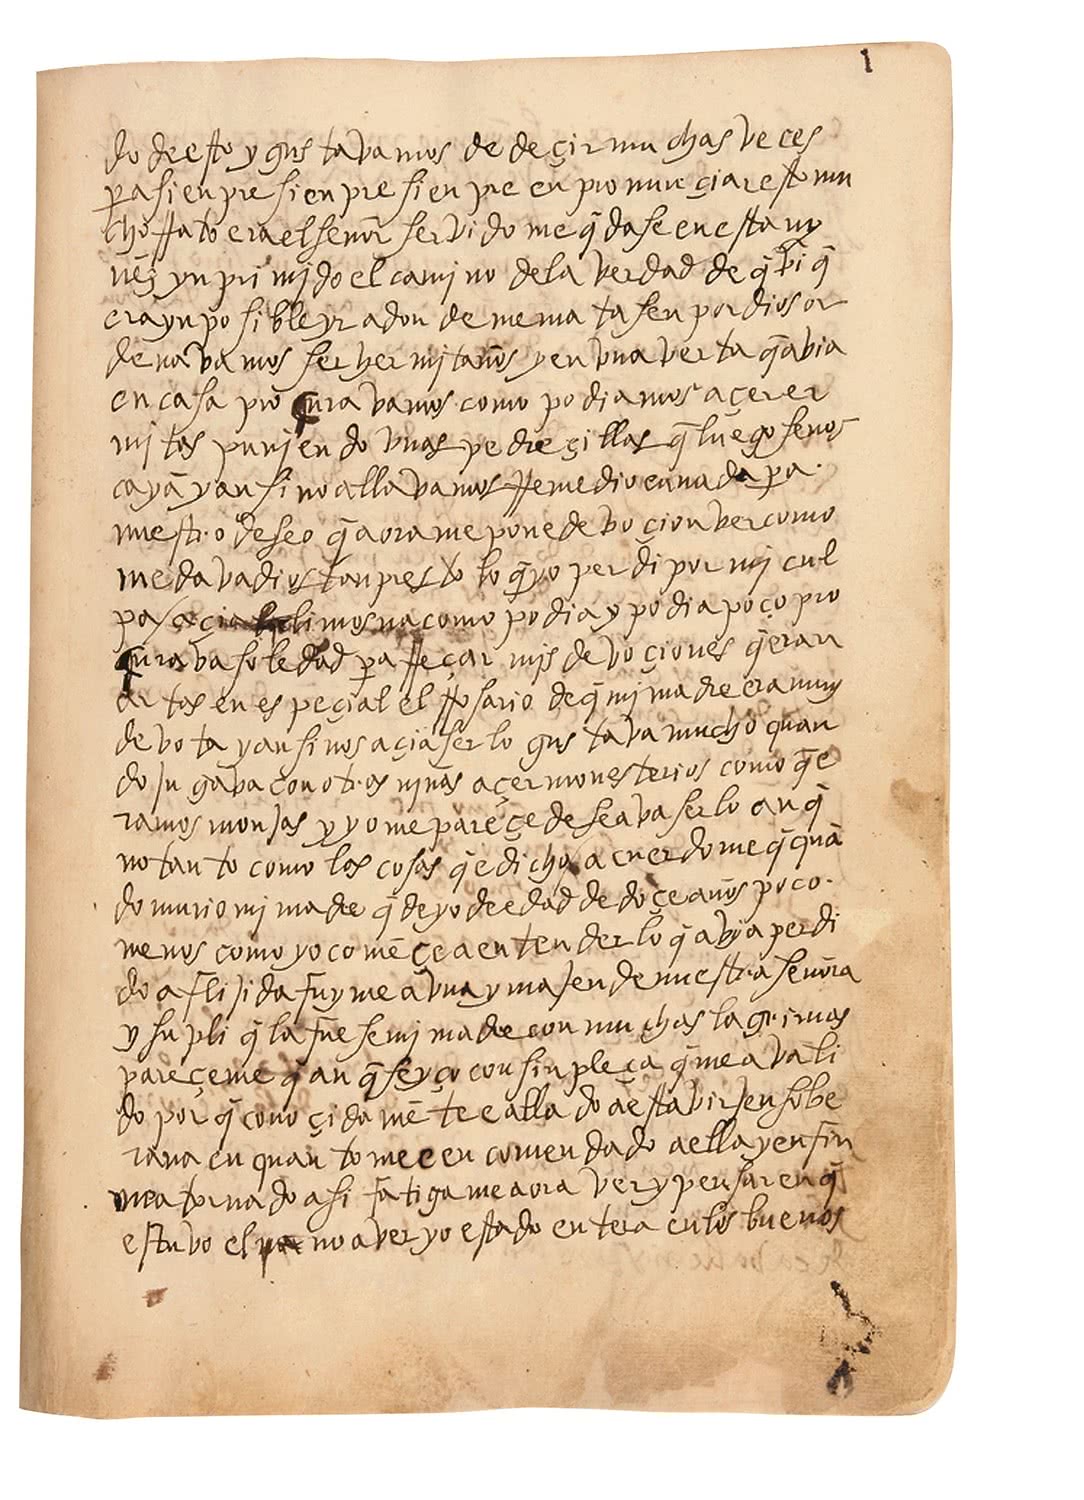 1
do de esto y gustavamos de deçir muchas veces
pa sienpre sienpre sienpre en pronunçiar esto mu
cho rrato era el señor servido me q̄dase en esta ny
ñez ynprimido el camino de la verdad de q̄ vi q̄
era ynposible yr a don de me matasen por dios or
denavamos ser hermitaños y en vna verta q̄ abia
en casa procuravamos como podiamos açer er
mitas puniendo vnas pedreçillas q̄ luego se nos
cayā y ansi no allavamos rremedio en nada pa
nuestro deseo q̄ aora me pone devoçion ver como
me dava dios tan presto lo q̄ yo perdi por mi cul
pa / açia limosna como podia y podia poço pro
curava soledad pa rreçar mis devoçiones q̄ eran
artas en espeçial el rrosario de q̄ mi madre era muy
devota y ansi nos açia serlo gustava mucho quan
do jugava con otras niñas açer monesterios como q̄ e
ramos monjas y yo me pareçe deseava serlo anq̄
no tanto como las cosas q̄ e dicho / acuerdome q̄ quā
do murio mi madre q̄de yo de edad de doçe años poco
menos como yo comēçe a entender lo q̄ abya perdi
do aflijida fuyme a vna ymajen de nuestra señora
y supliq̄ la fuese mi madre con muchas lagrimas
pareçeme q̄ anq̄ se yço con sinpleça q̄ me a vali
do porq̄ conoçidamēte e allado a esta virjen sobe
rana en quanto me e encomendado a ella y en fin
me a tornado a si fatigame aora ver y pensar en q̄
estuvo el no aver yo estado entera en los buenos